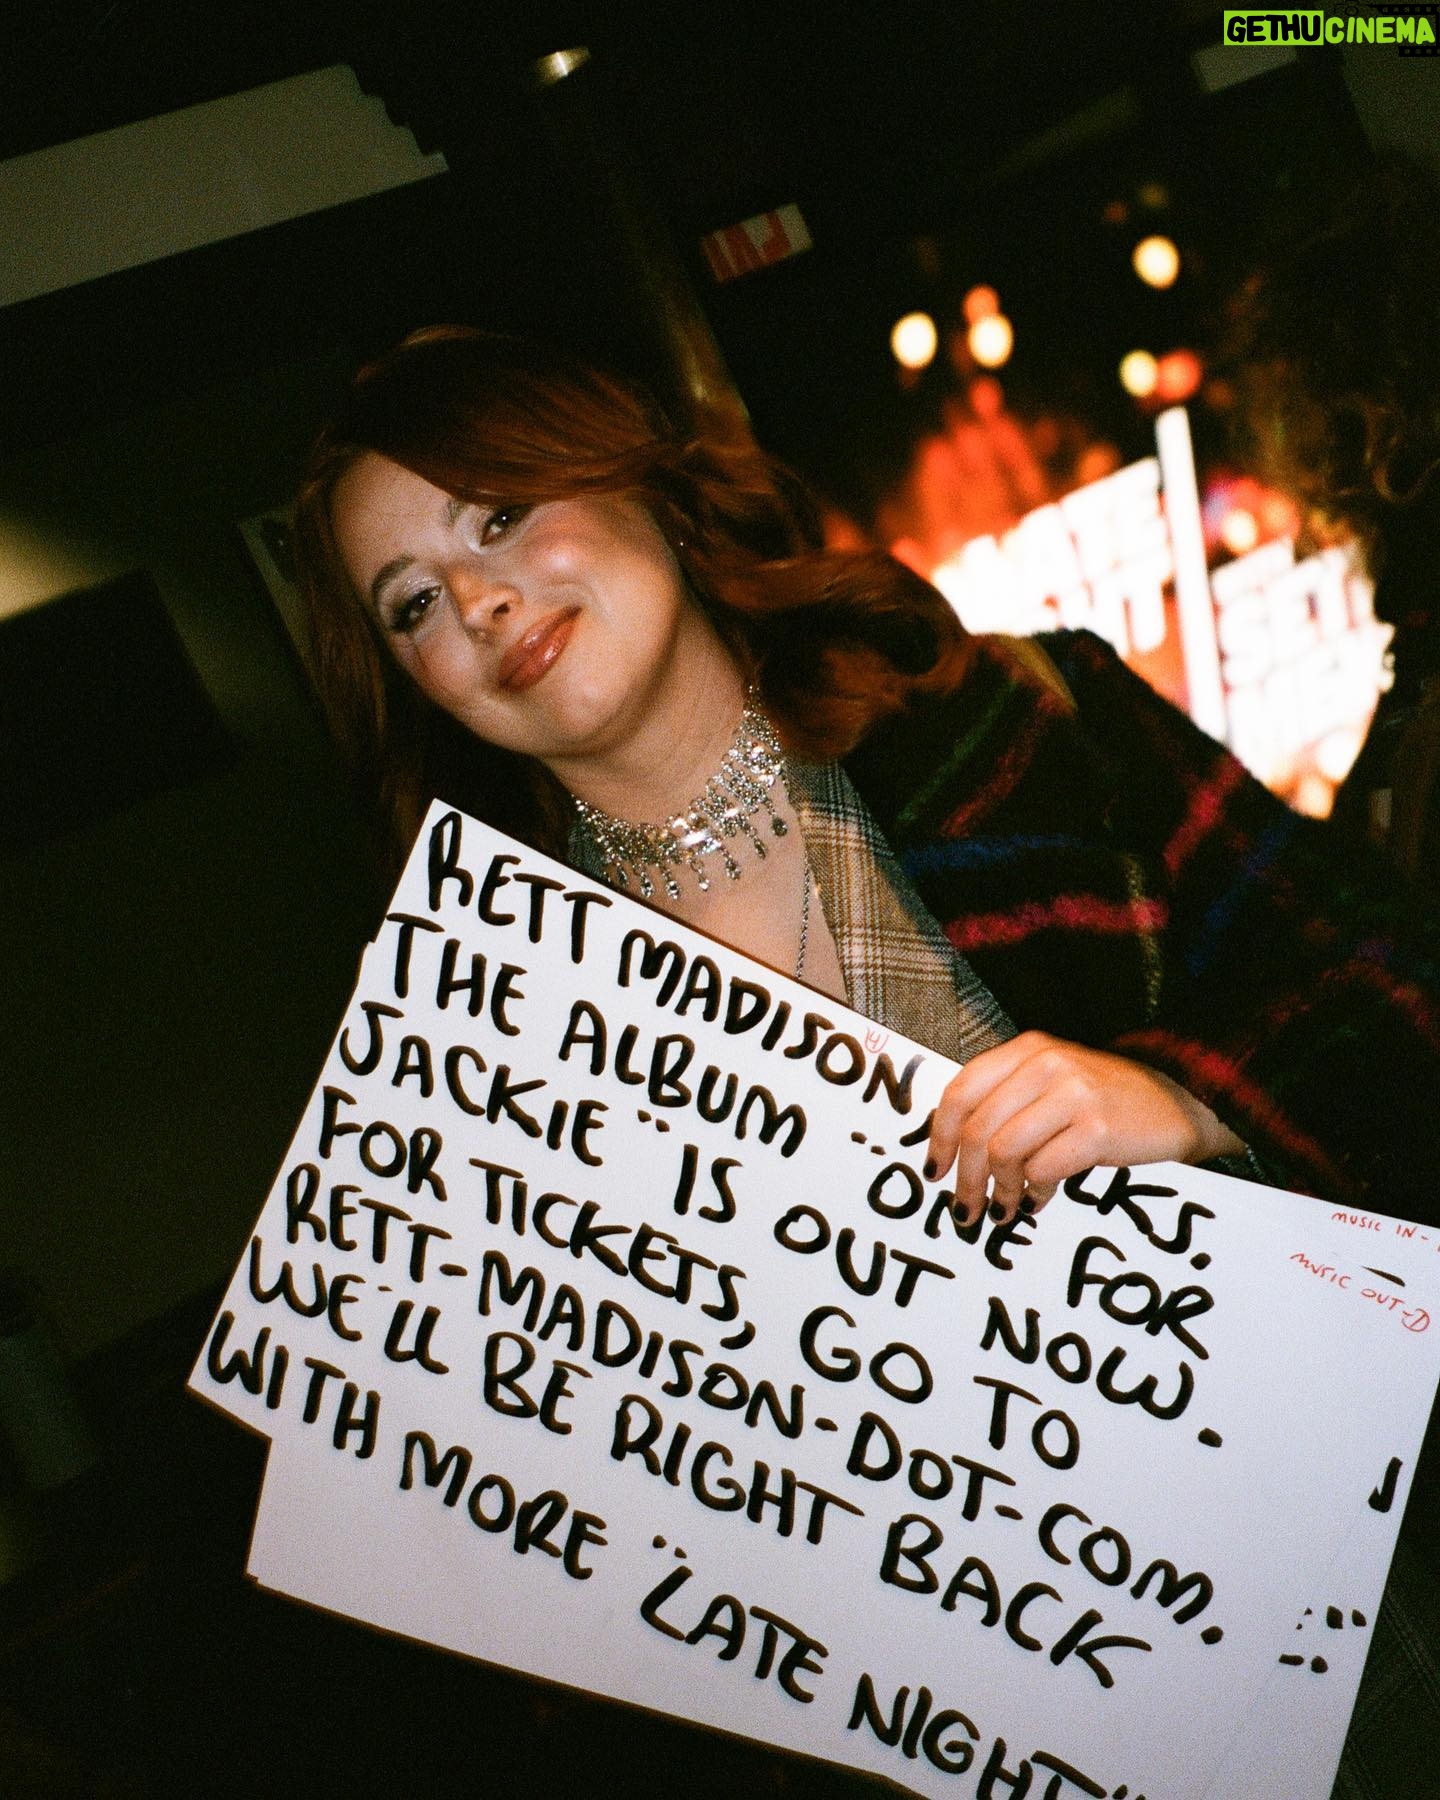 GETHUCINEMA
RETT MADISON,
THE ALBUM "ONE FOR
JACKIE" IS OUT NOW.
FOR TICKETS, GO TO
RETT-MADISON-DOT-COM.
WE'LL BE RIGHT BACK
WITH MORE "LATE NIGHT"
MUSIC IN-
MUSIC OUT-D